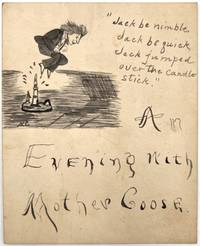 "Jack be nimble
Jack be quick
Jack jumped
over the candle
stick."
An
Evening with
Mother Goose.